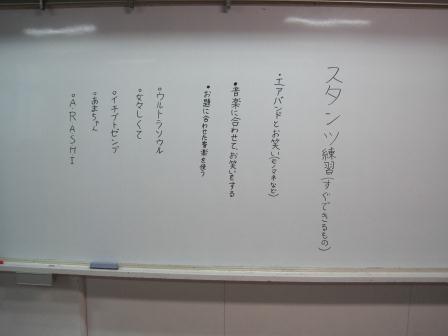 スタンツ練習(すぐできるもの)
・エアバンドとお笑い(モノマネなど)
・音楽に合わせて、お笑いをする
・お題に合わせた音楽を使う
○ウルトラソウル
○女々しくて
○イチブトゼンブ
○あまちゃん
○A・RA・SHI